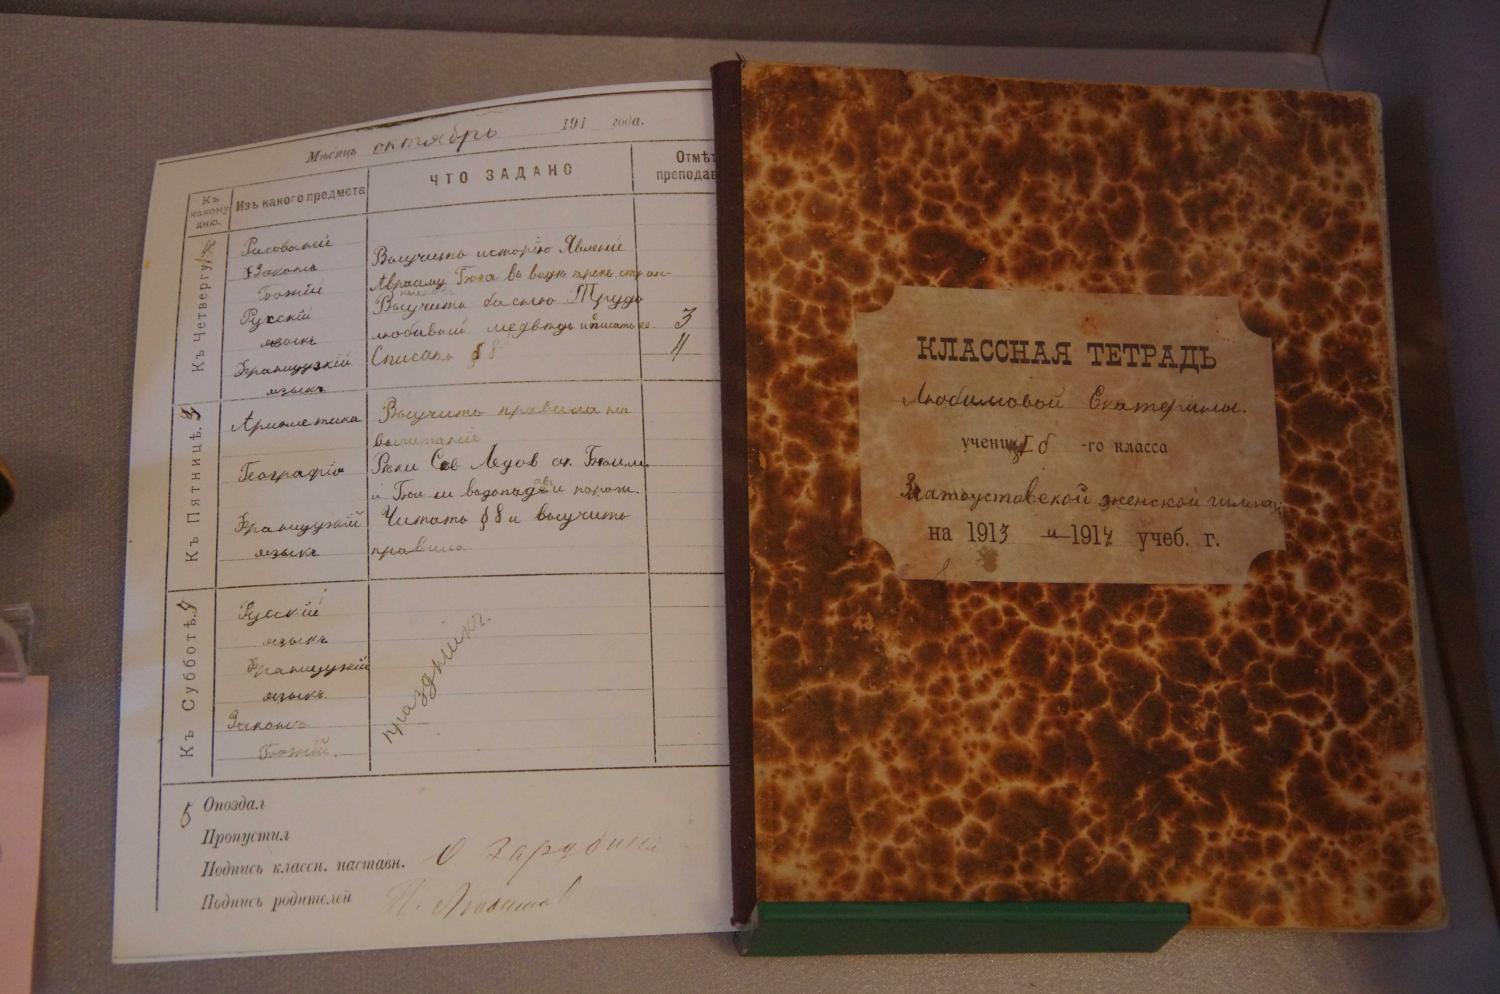 Мѣсяцъ октябрь 191 года.
Къ какому дню.
Изъ какого предмета
ЧТО ЗАДАНО
Отмѣт
преподав
Къ Четвергу
Рисованіе
Законъ
Божій
Русскій
языкъ
Французскій
языкъ
Выучить исторію Явленіе
Аврааму Бога въ видѣ трехъ стран-
Выучить басню Трудо
любивый медвѣдь и списать ее.
3
Списать § 8
4
Къ Пятницѣ.
Ариѳметика
Выучить правила на
вычитаніе
Географія
Рѣки Сѣв Ледов ок.
и водопады и пороги.
Французскій
языкъ
Читать § 8 и выучить
правила
Къ Субботѣ.
Русскій
языкъ
Французскій
языкъ.
Законъ
Божій.
праздникъ.
5 Опоздал
Пропустил
Подпись классн. наставн. О Зарубина
Подпись родителей
КЛАССНАЯ ТЕТРАДЬ
Любимовой Екатерины.
учениц I б -го класса
Златоустовской женской гимназ
на 1913 и 1914 учеб. г.